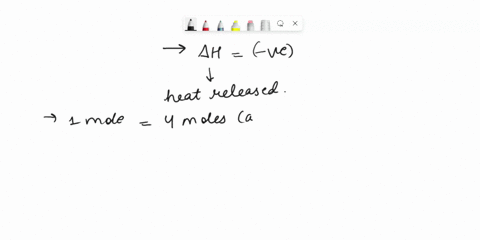 → ΔH = (-ve)
↓
heat released.
→ 1 mole = 4 moles (a